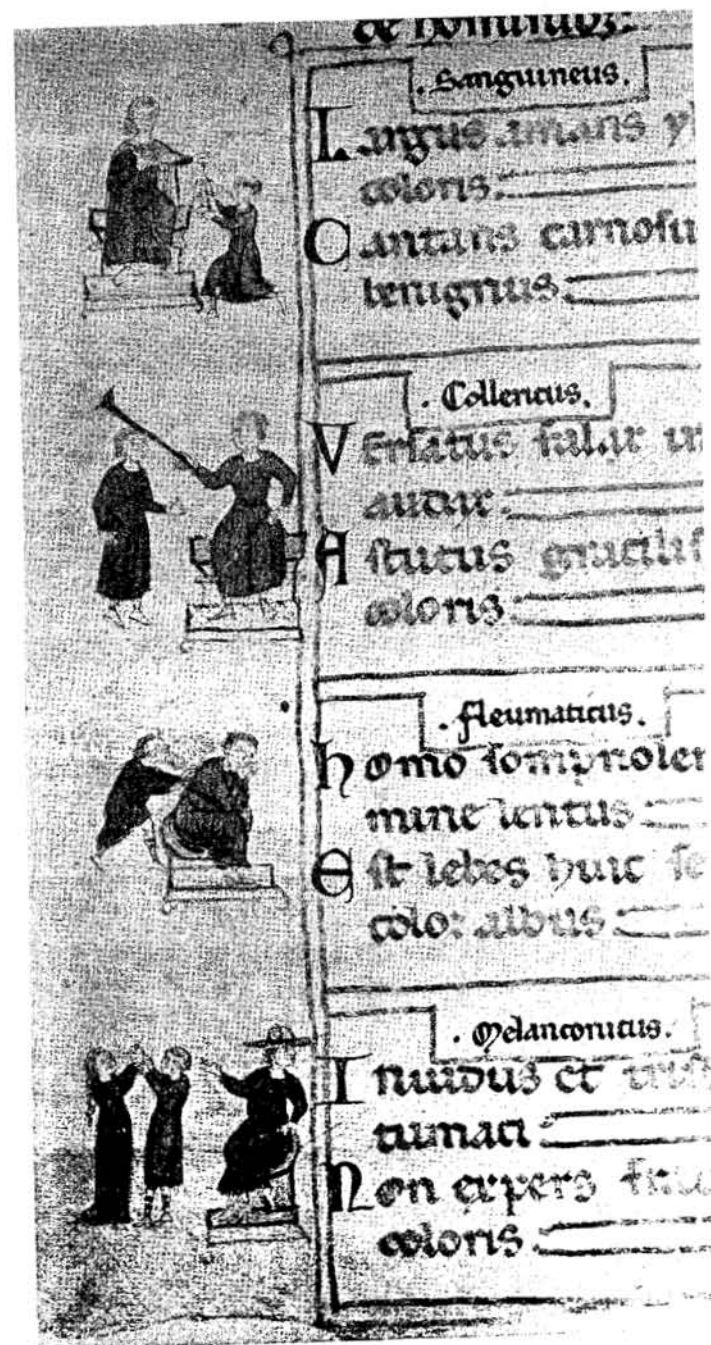 de hominibz:
. Sanguineus.
Largus amans y
coloris:
Cantans carnosu
benignus:
. Collericus.
Versatus falax ir
audax:
Astutus gracilis
coloris:
. fleumaticus.
homo sompnolen
mine lentus
Est lebes huic se
color albus
. Melanconicus.
Inuidus et trist
timaci
Non expers frau
coloris